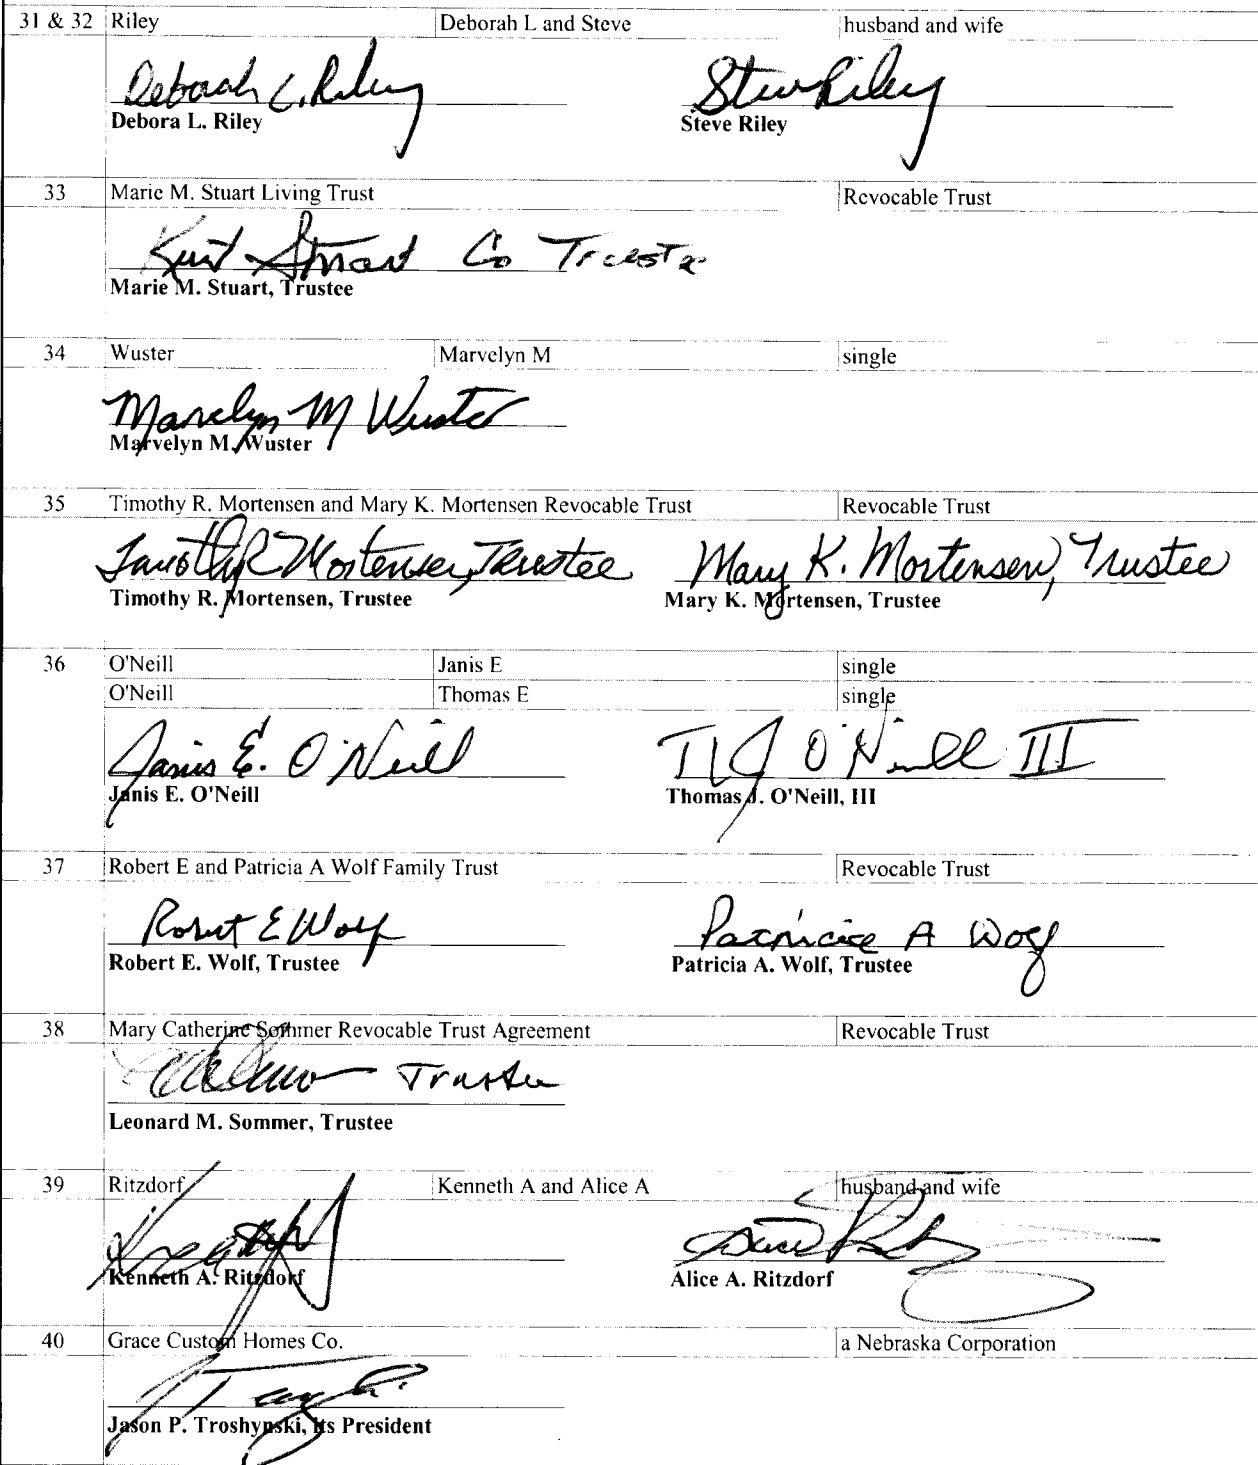 31 & 32 Riley Deborah L and Steve husband and wife
Deborah L. Riley Steve Riley
Debora L. Riley Steve Riley
33 Marie M. Stuart Living Trust Revocable Trust
Kurt Stuart Co Trustee
Marie M. Stuart, Trustee
34 Wuster Marvelyn M single
Marvelyn M Wuster
Marvelyn M. Wuster
35 Timothy R. Mortensen and Mary K. Mortensen Revocable Trust Revocable Trust
Timothy R Mortensen, Trustee Mary K. Mortensen, Trustee
Timothy R. Mortensen, Trustee Mary K. Mortensen, Trustee
36 O'Neill Janis E single
O'Neill Thomas E single
Janis E. O'Neill T J O'Neill III
Janis E. O'Neill Thomas J. O'Neill, III
37 Robert E and Patricia A Wolf Family Trust Revocable Trust
Robert E Wolf Patricia A Wolf
Robert E. Wolf, Trustee Patricia A. Wolf, Trustee
38 Mary Catherine Sommer Revocable Trust Agreement Revocable Trust
Trustee
Leonard M. Sommer, Trustee
39 Ritzdorf Kenneth A and Alice A husband and wife
Kenneth A. Ritzdorf Alice A. Ritzdorf
40 Grace Custom Homes Co. a Nebraska Corporation
Jason P. Troshynski, Its President